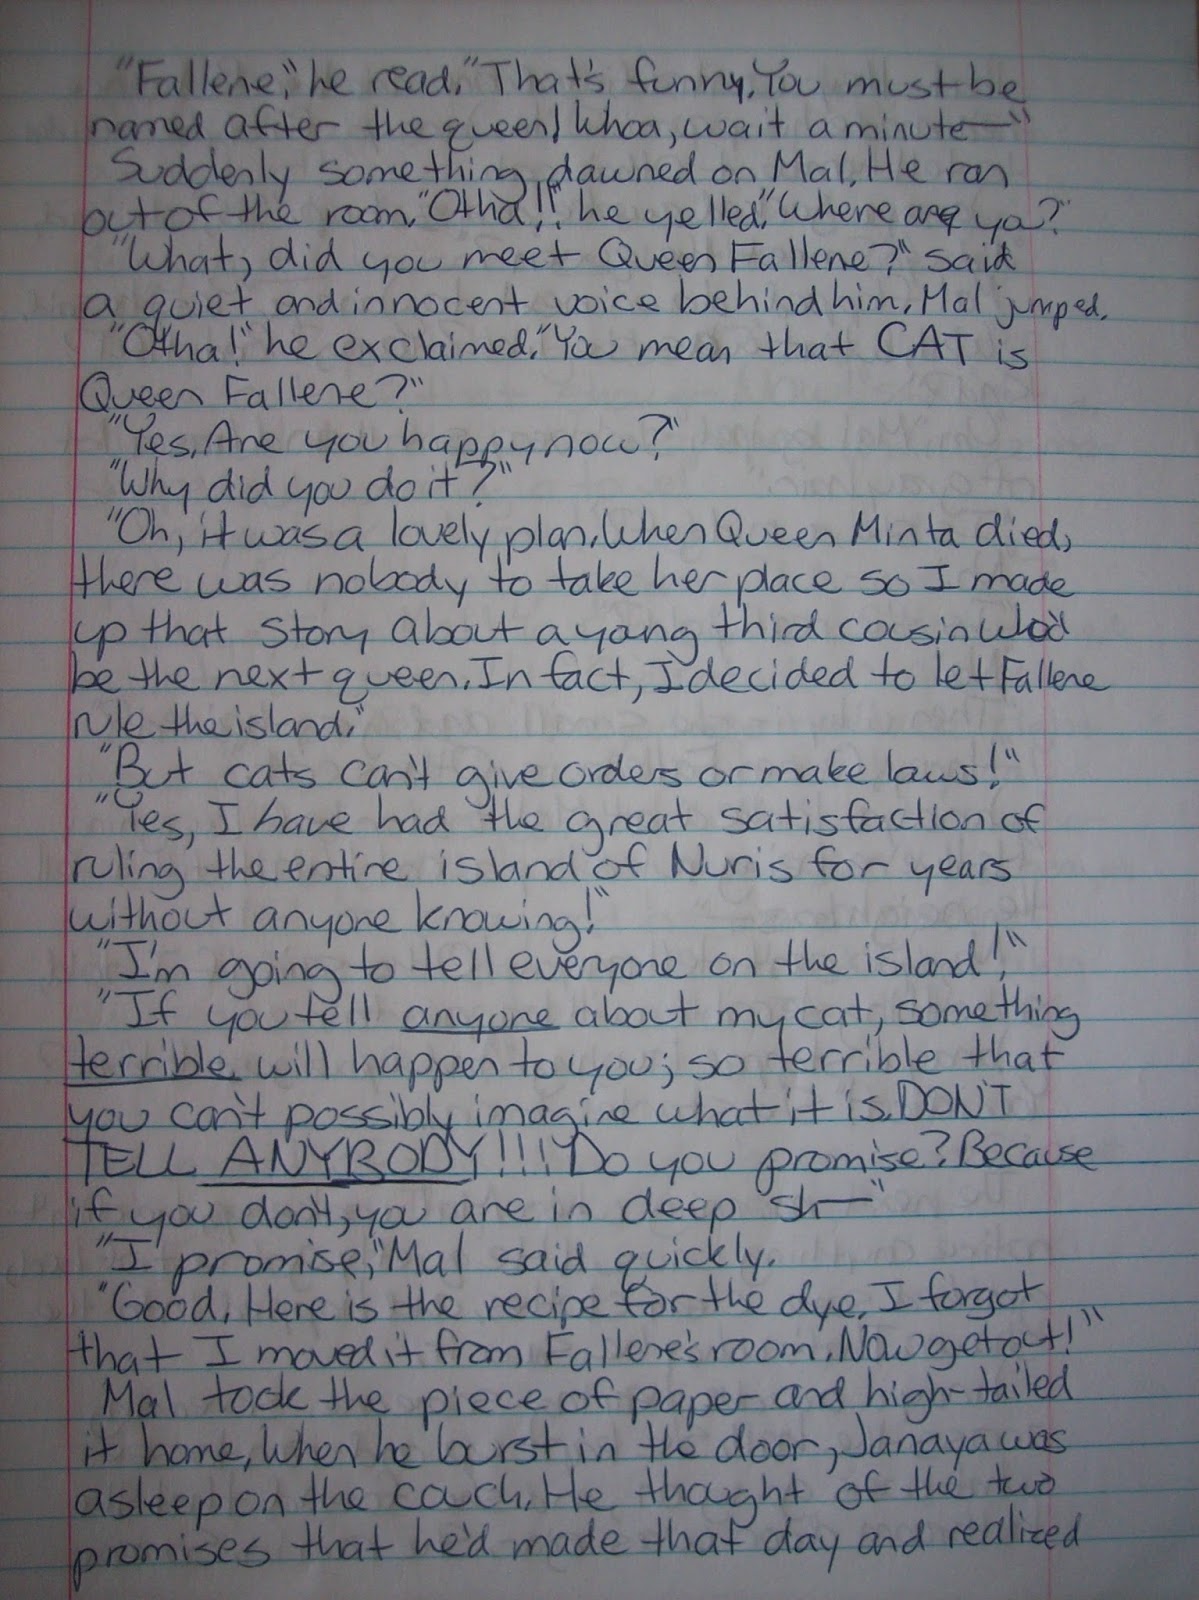 "Fallene," he read. "That's funny. You must be
named after the queen! Whoa, wait a minute—"
Suddenly something dawned on Mal. He ran
out of the room. "Otha!!" he yelled, "Where are ya?"
"What, did you meet Queen Fallene?" said
a quiet and innocent voice behind him. Mal jumped.
"Otha!" he exclaimed. "You mean that CAT is
Queen Fallene?"
"Yes. Are you happy now?"
"Why did you do it?"
"Oh, it was a lovely plan. When Queen Minta died,
there was nobody to take her place so I made
up that story about a young third cousin who'd
be the next queen. In fact, I decided to let Fallene
rule the island."
"But cats can't give orders or make laws!"
"Yes, I have had the great satisfaction of
ruling the entire island of Nuris for years
without anyone knowing!"
"I'm going to tell everyone on the island!"
"If you tell anyone about my cat, something
terrible will happen to you; so terrible that
you can't possibly imagine what it is. DON'T
TELL ANYBODY!!!! Do you promise? Because
if you don't, you are in deep sh—"
"I promise," Mal said quickly.
"Good. Here is the recipe for the dye. I forgot
that I moved it from Fallene's room. Now get out!"
Mal took the piece of paper and high-tailed
it home. When he burst in the door, Janaya was
asleep on the couch. He thought of the two
promises that he'd made that day and realized